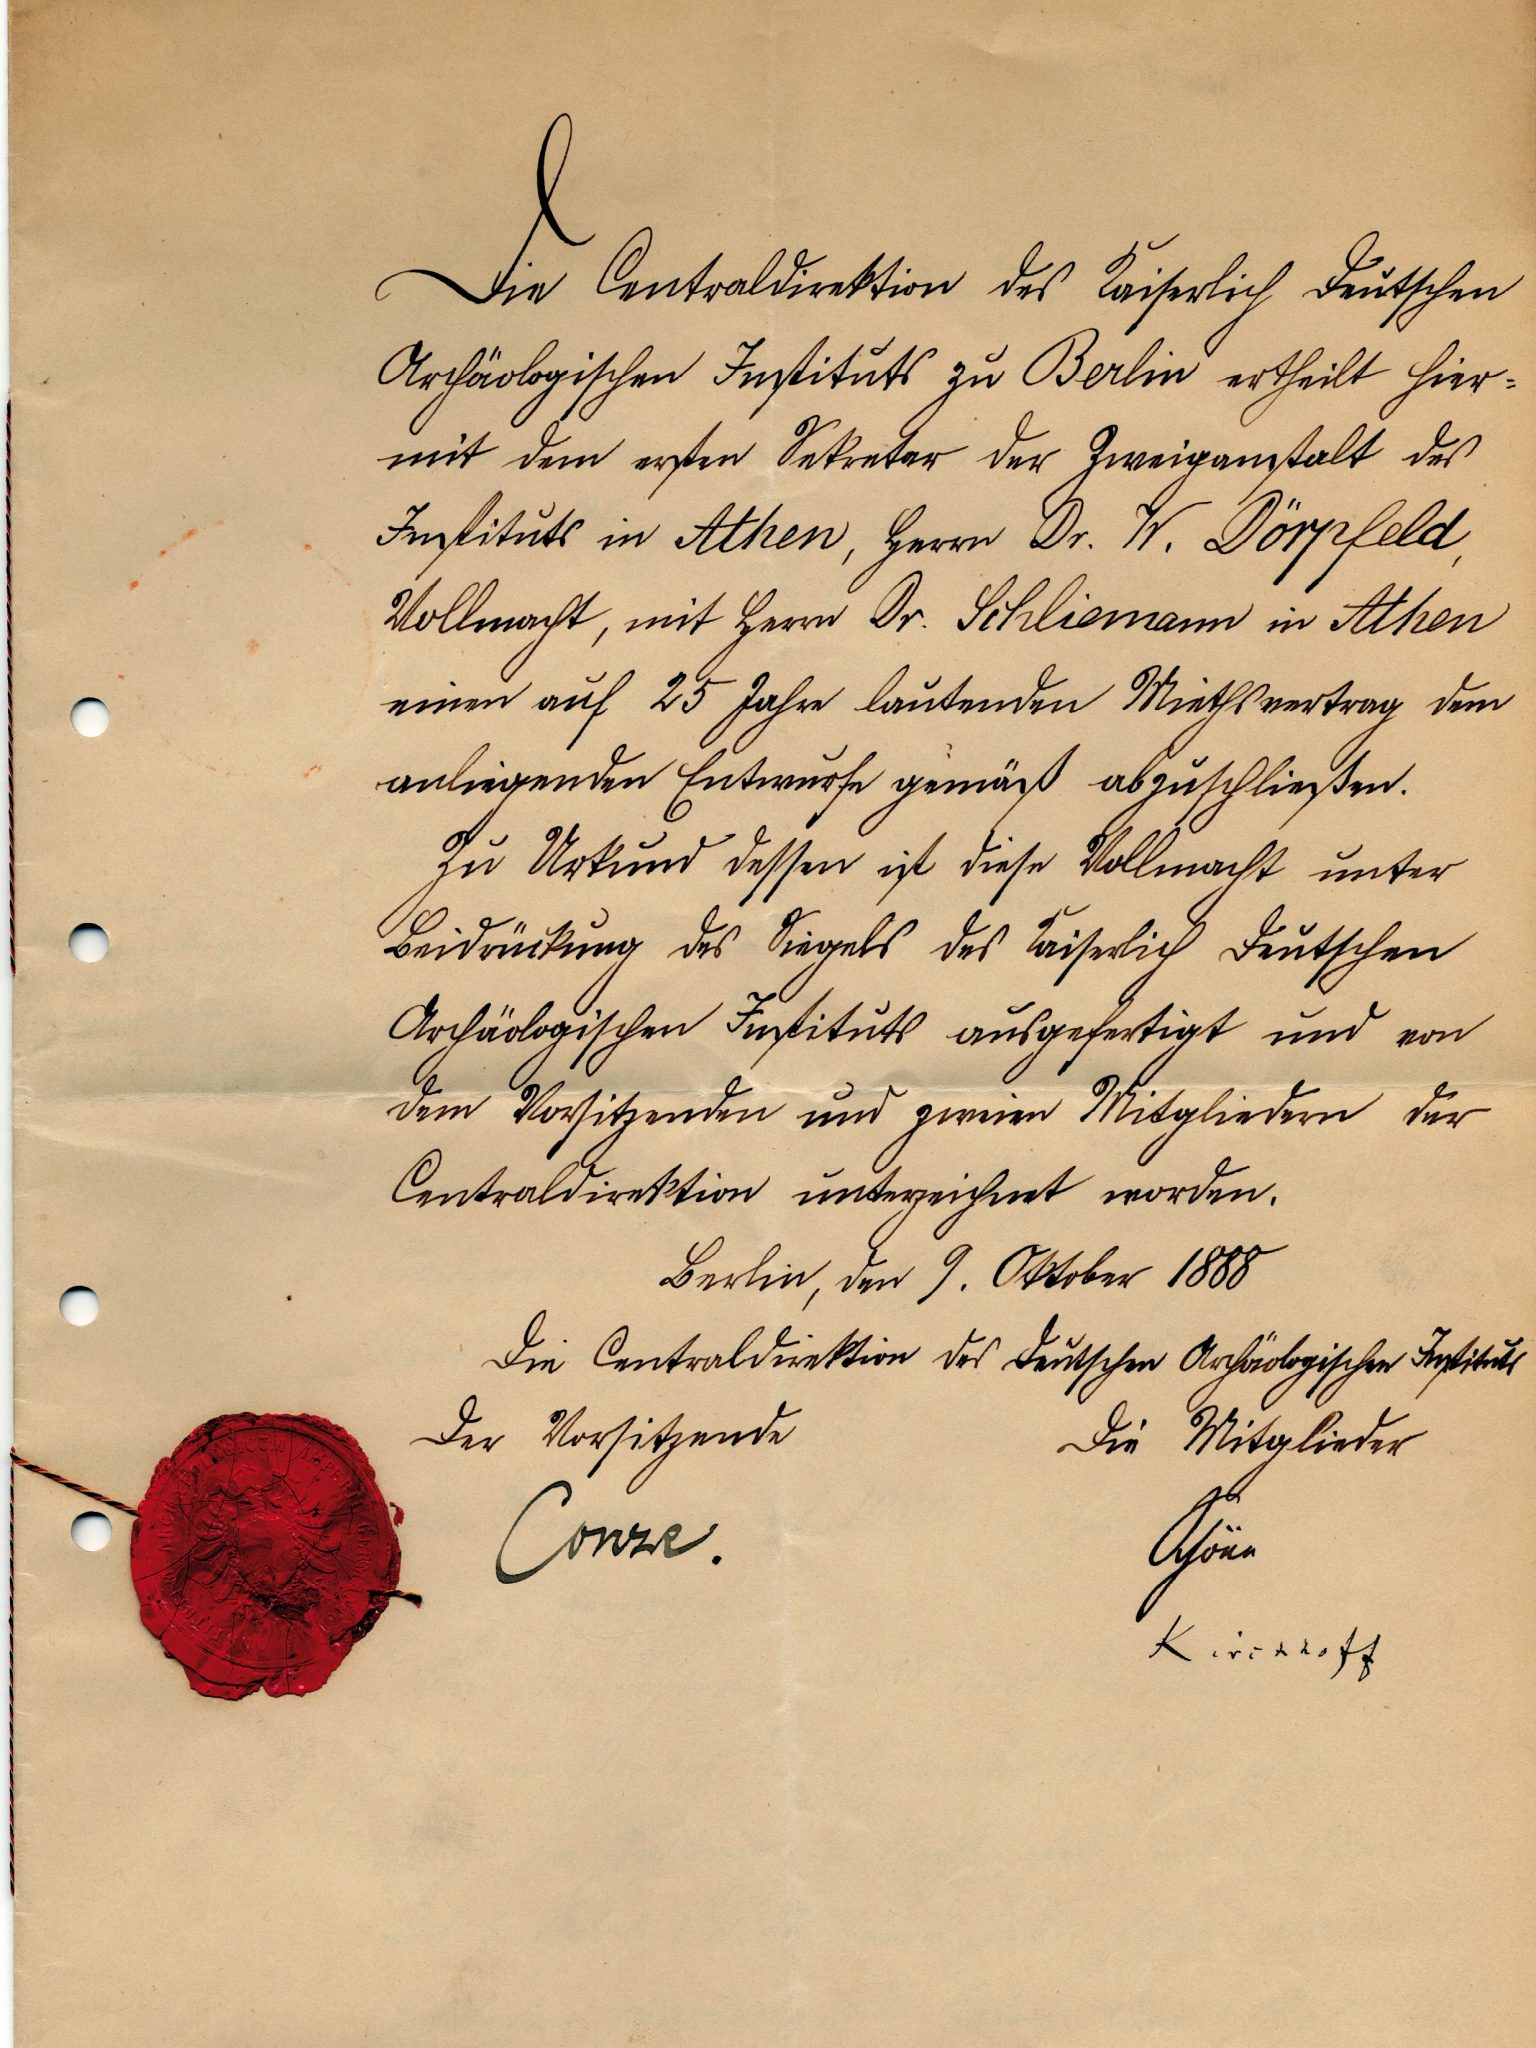 Die Centraldirektion des Kaiserlich Deutschen
Archäologischen Instituts zu Berlin ertheilt hier=
mit dem ersten Sekretar der Zweiganstalt des
Instituts in Athen, Herrn Dr. W. Dörpfeld,
Vollmacht, mit Herrn Dr. Schliemann in Athen
einen auf 25 Jahre lautenden Miethsvertrag dem
anliegenden Entwurfe gemäß abzuschließen.
Zu Urkund dessen ist diese Vollmacht unter
Beidrückung des Siegels des Kaiserlich Deutschen
Archäologischen Instituts ausgefertigt und von
dem Vorsitzenden und zweien Mitgliedern der
Centraldirektion unterzeichnet worden.
Berlin, den 9. Oktober 1888
Die Centraldirektion des Deutschen Archäologischen Instituts
Der Vorsitzende
Die Mitglieder
Conze.
Schöne
Kirchhoff